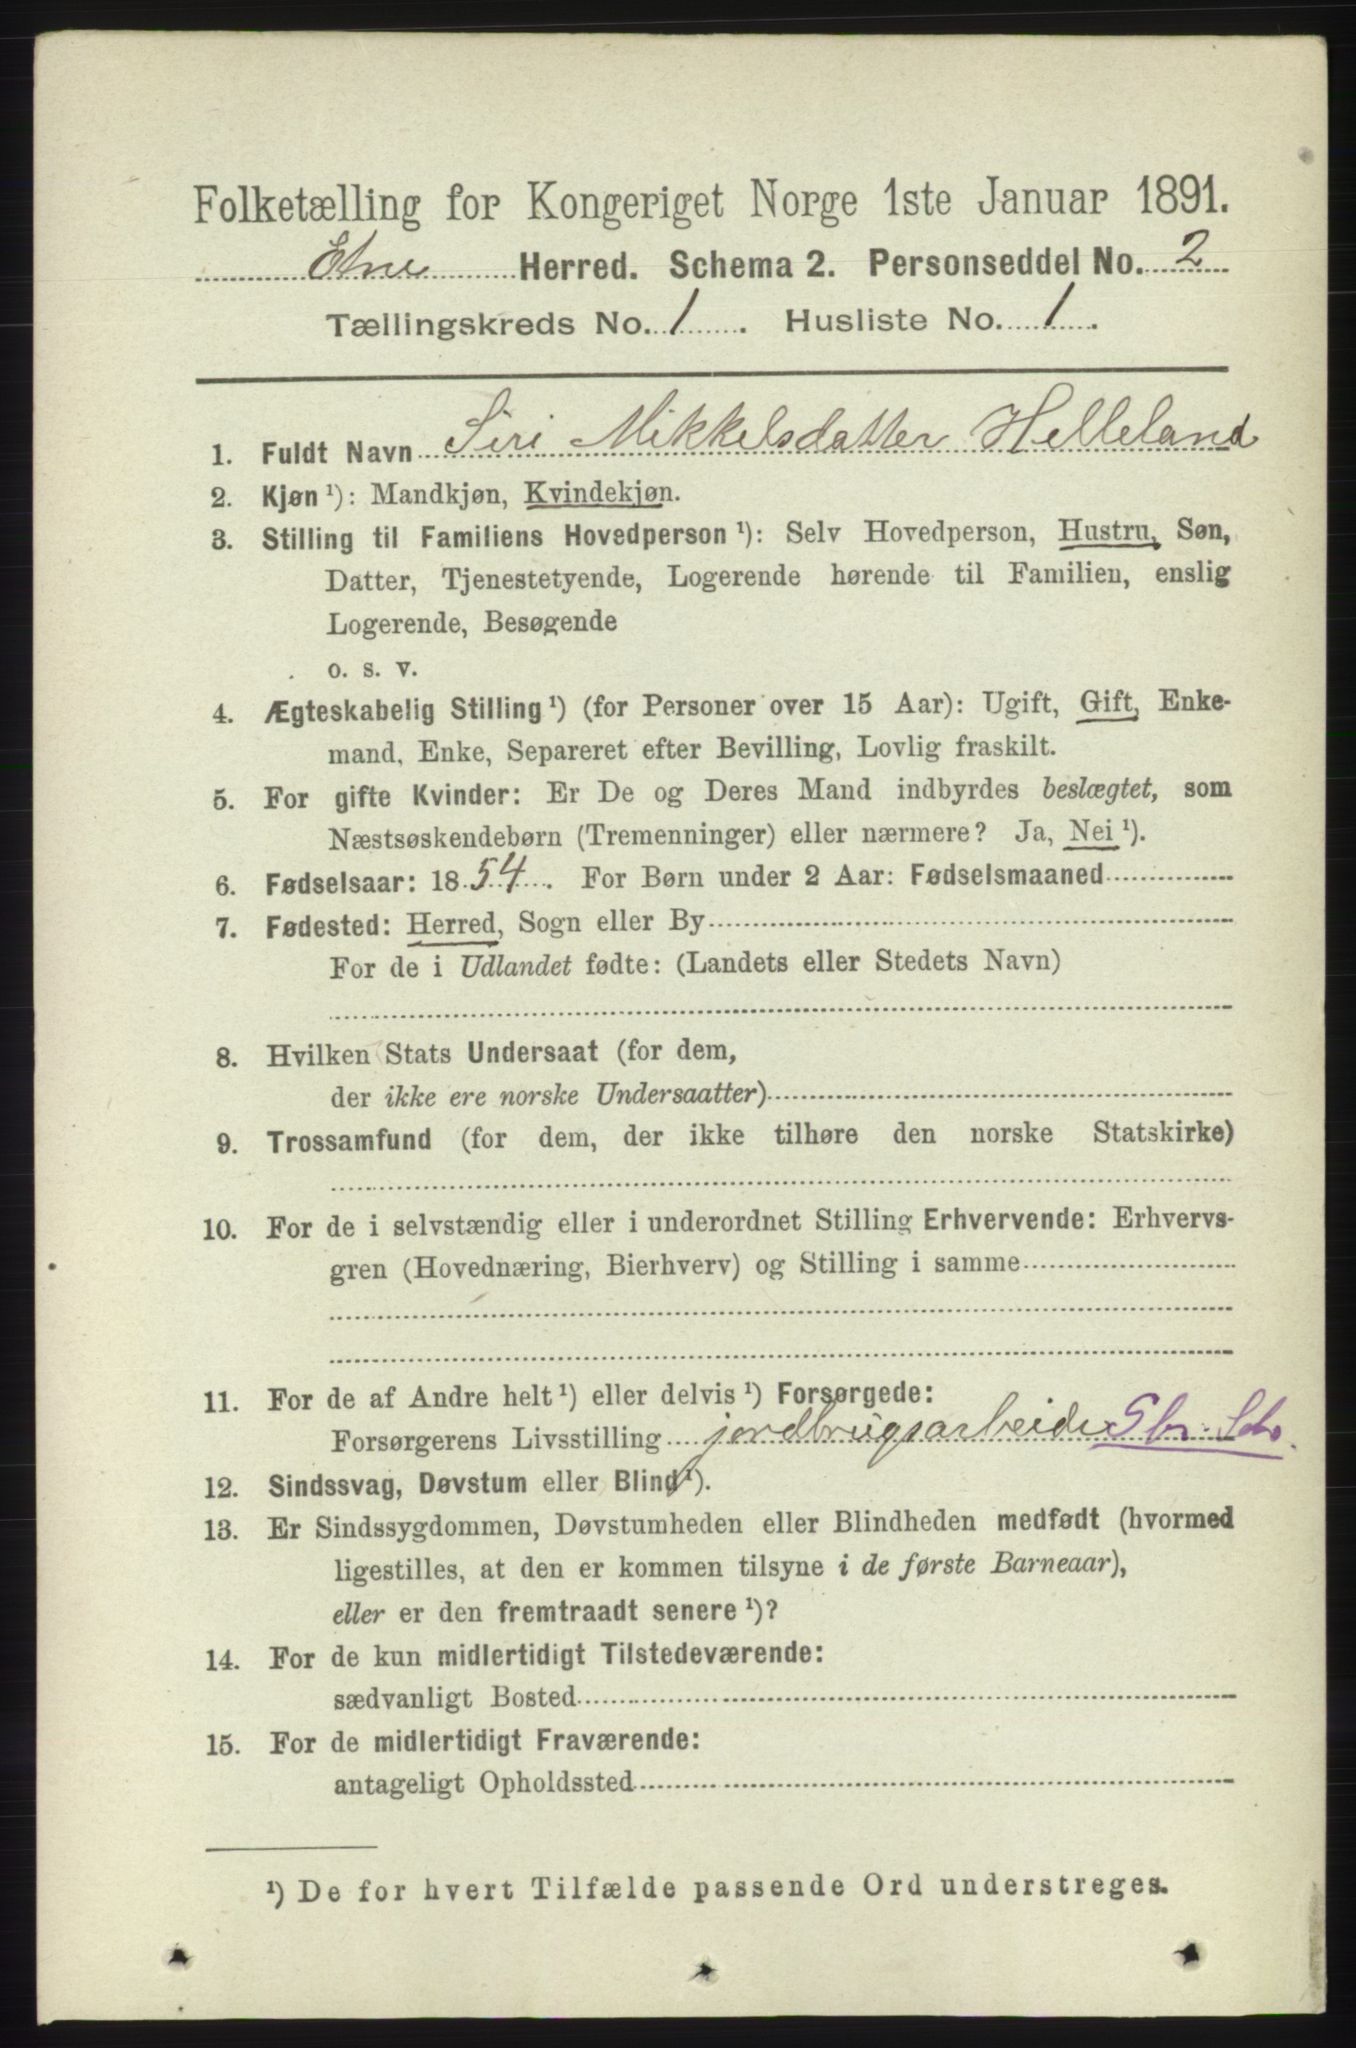 Folketælling for Kongeriget Norge 1ste Januar 1891.
Etne Herred. Schema 2. Personseddel No. 2
Tællingskreds No. 1. Husliste No. 1.
1. Fuldt Navn Siri Mikkelsdatter Helleland
2. Kjøn ¹): Mandkjøn, Kvindekjøn.
3. Stilling til Familiens Hovedperson ¹): Selv Hovedperson, Hustru, Søn,
Datter, Tjenestetyende, Logerende hørende til Familien, enslig
Logerende, Besøgende
o. s. v.
4. Ægteskabelig Stilling ¹) (for Personer over 15 Aar): Ugift, Gift, Enke-
mand, Enke, Separeret efter Bevilling, Lovlig fraskilt.
5. For gifte Kvinder: Er De og Deres Mand indbyrdes beslægtet, som
Næstsøskendebørn (Tremenninger) eller nærmere? Ja, Nei ¹).
6. Fødselsaar: 1854. For Børn under 2 Aar: Fødselsmaaned
7. Fødested: Herred, Sogn eller By
For de i Udlandet fødte: (Landets eller Stedets Navn)
8. Hvilken Stats Undersaat (for dem,
der ikke ere norske Undersaatter)
9. Trossamfund (for dem, der ikke tilhøre den norske Statskirke)
10. For de i selvstændig eller i underordnet Stilling Erhvervende: Erhvervs-
gren (Hovednæring, Bierhverv) og Stilling i samme
11. For de af Andre helt ¹) eller delvis ¹) Forsørgede:
Forsørgerens Livsstilling jordbrugsarbeide
12. Sindssvag, Døvstum eller Blind ¹).
13. Er Sindssygdommen, Døvstumheden eller Blindheden medfødt (hvormed
ligestilles, at den er kommen tilsyne i de første Barneaar),
eller er den fremtraadt senere ¹)?
14. For de kun midlertidigt Tilstedeværende:
sædvanligt Bosted
15. For de midlertidigt Fraværende:
antageligt Opholdssted
¹) De for hvert Tilfælde passende Ord understreges.